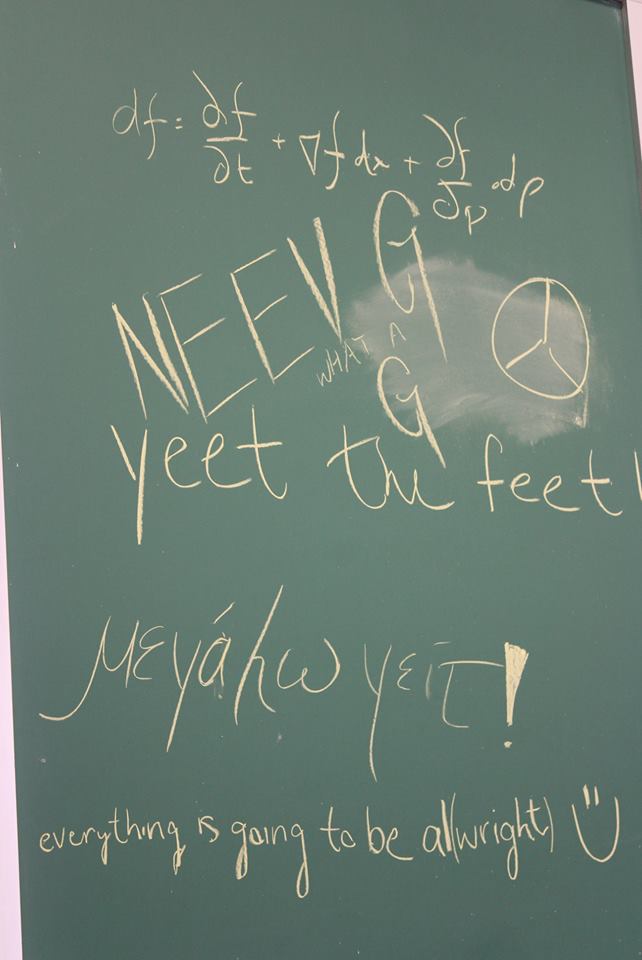 df = ∂f/∂t + ∇f dx + ∂f/∂p dp
NEEV G
WHAT A
G
yeet the feet!
μεγάλω γείτ!
everything is going to be al(wright) :)